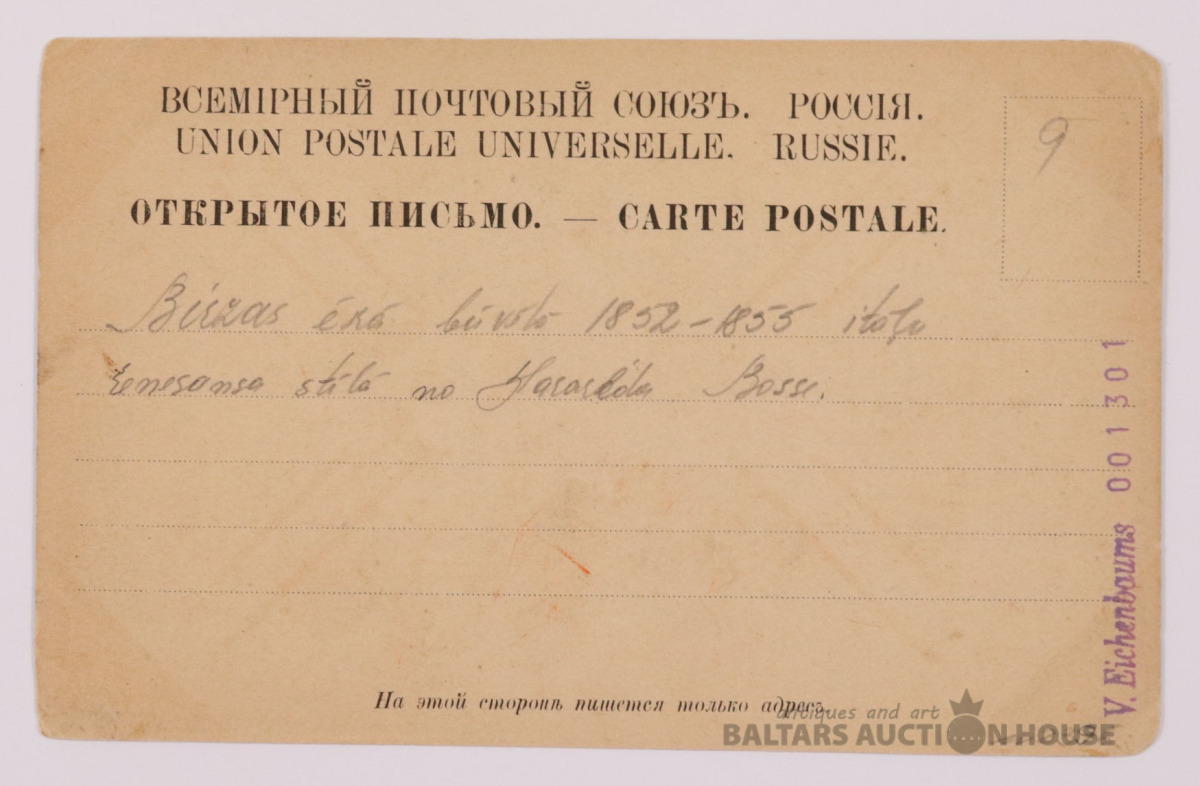 ВСЕМІРНЫЙ ПОЧТОВЫЙ СОЮЗЪ. РОССІЯ.
UNION POSTALE UNIVERSELLE. RUSSIE.
ОТКРЫТОЕ ПИСЬМО. — CARTE POSTALE.
9
Biržas ēkā būvētā 1852-1855 itāļu
renesansa stilā no Haralda Bosse.
На этой сторонѣ пишется только адресъ.
V. Eichenbaums 001301
antiques and art
BALTARS AUCTION HOUSE